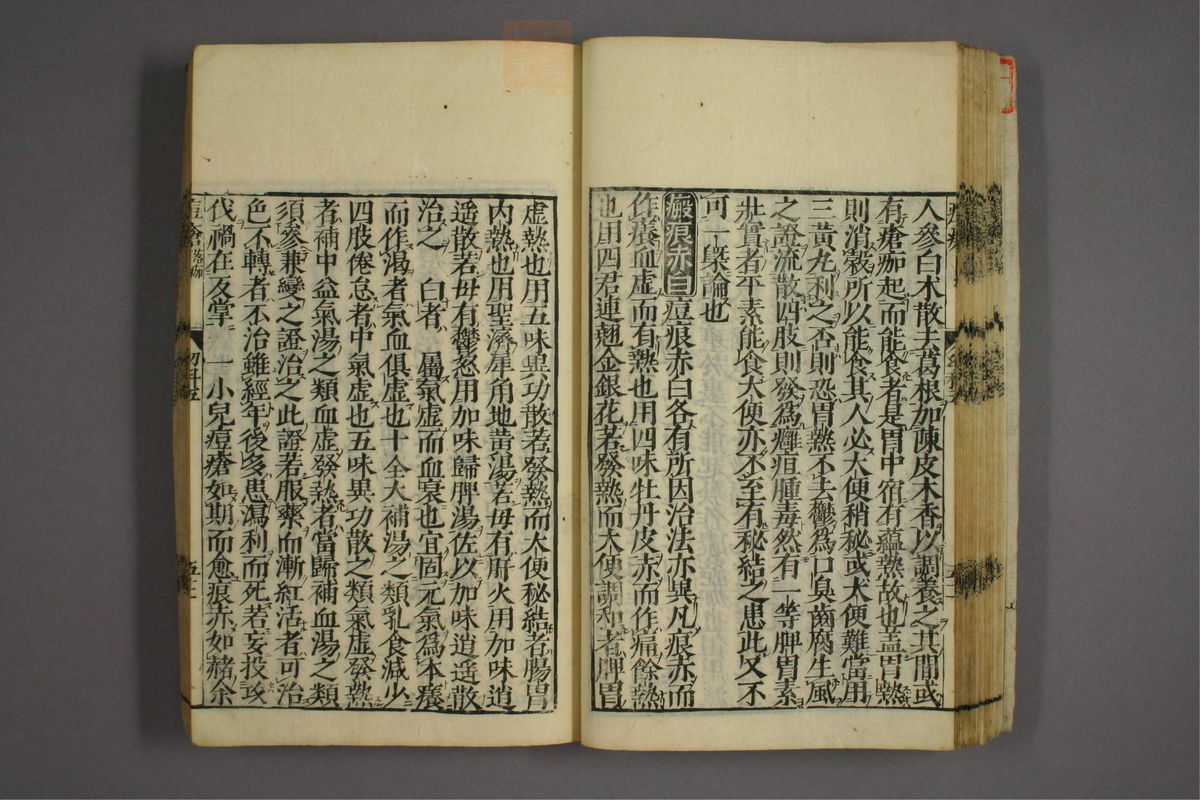 人參白朮散去葛根加陳皮木香以調養之其間或
有瘡痂起而能食者是胃中宿有蘊熱故也蓋胃熱
則消穀所以能食其人必大便稍秘或大便難當用
三黃丸利之否則恐胃熱不去鬱爲口臭齒腐生風
之證流散四肢則發爲癰疽腫毒然有一等脾胃素
壯實者平素能食大便亦不至有秘結之患此又不
可一槩論也
瘢痕赤白痘痕赤白各有所因治法亦異凡痕赤而
作癢血虛而有熱也用四味牡丹皮赤而作痛餘熱
也用四君連翹金銀花若發熱而大便調和者脾胃
虛熱也用五味異功散若發熱而大便秘結者腸胃
內熱也用聖濟犀角地黃湯若母有肝火用加味逍
遥散若母有鬱怒用加味歸脾湯佐以加味逍遥散
治之 白者 屬氣虛而血衰也宜固元氣爲本癢
而作渴者氣血俱虛也十全大補湯之類乳食減少
四肢倦怠者中氣虛也五味異功散之類氣虛發熱
者補中益氣湯之類血虛發熱者當歸補血湯之類
須參兼變之證治之此證若服藥而漸紅活者可治
色不轉者不治雖經年後多患瀉利而死若妄投攻
伐禍在反掌 一小兒痘瘡如期而愈痕赤如赭余